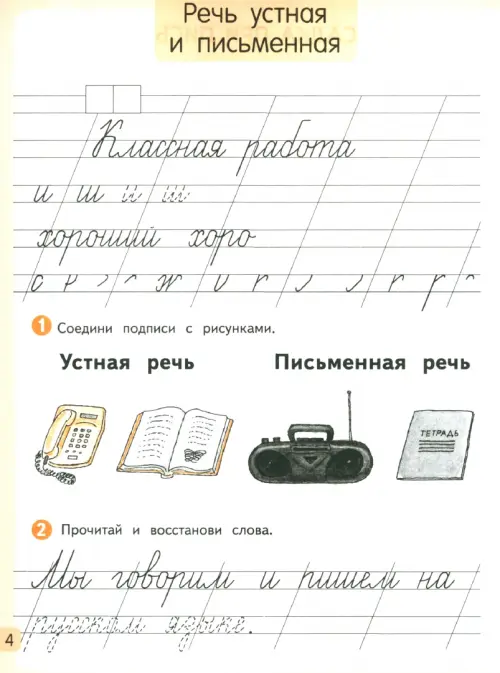 Речь устная
и письменная
Классная работа
и ш и ш
хороший хоро
1 Соедини подписи с рисунками.
Устная речь Письменная речь
ТЕТРАДЬ
2 Прочитай и восстанови слова.
Мы говорим и пишем на
русском языке.
4